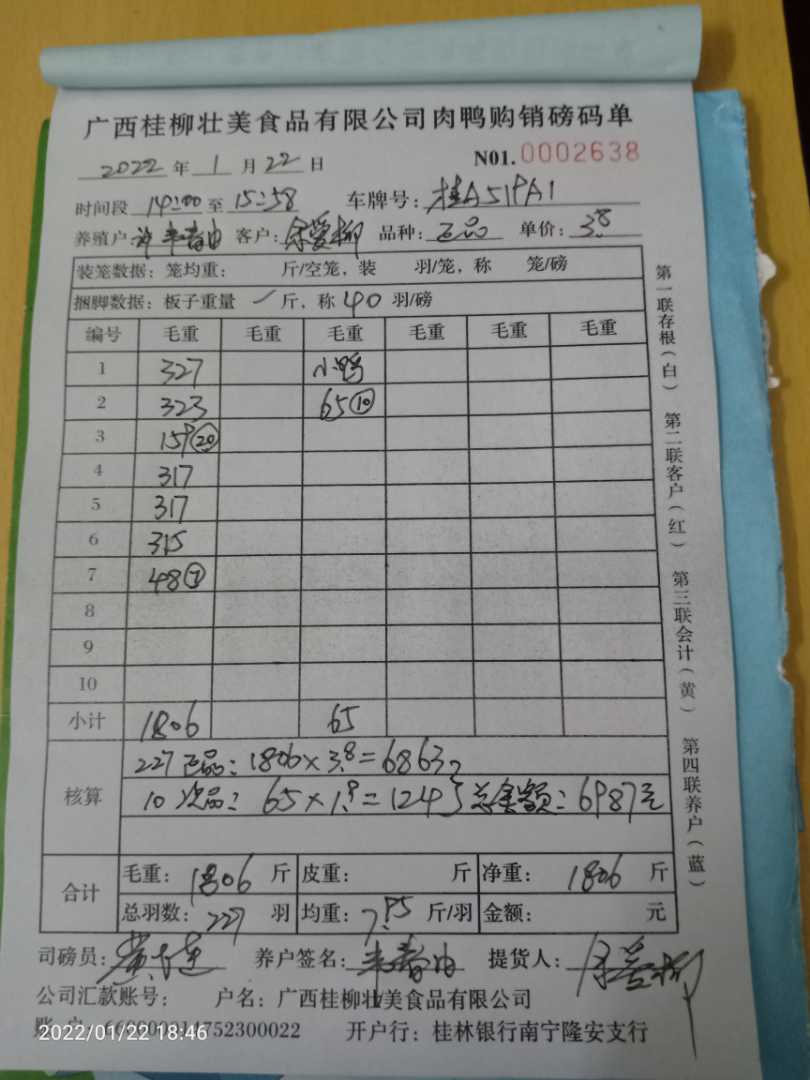 广西桂柳壮美食品有限公司肉鸭购销磅码单
2022 年 1 月 22 日 N01.0002638
时间段 14:00 至 15:58 车牌号: 桂A519A1
养殖户: 客户: 余爱柳 品种: 正品 单价: 3.8
装笼数据: 笼均重: 斤/空笼, 装 羽/笼, 称 笼/磅
捆脚数据: 板子重量 / 斤, 称 40 羽/磅
编号 毛重 毛重 毛重 毛重 毛重 毛重
1 327 小鸭
2 323 65⑩
3 159⑳
4 317
5 317
6 315
7 48⑦
8
9
10
小计 1806 65
核算
227正品: 1806×3.8=6863
10次品: 65×1.9=124 } 总金额: 6987元
合计
毛重: 1806 斤 皮重: 斤 净重: 1806 斤
总羽数: 227 羽 均重: 7.95 斤/羽 金额: 元
司磅员: 养户签名: 提货人: 余爱柳
公司汇款账号: 户名: 广西桂柳壮美食品有限公司
752300022 开户行: 桂林银行南宁隆安支行
2022/01/22 18:46
第一联存根(白) 第二联客户(红) 第三联会计(黄) 第四联养户(蓝)